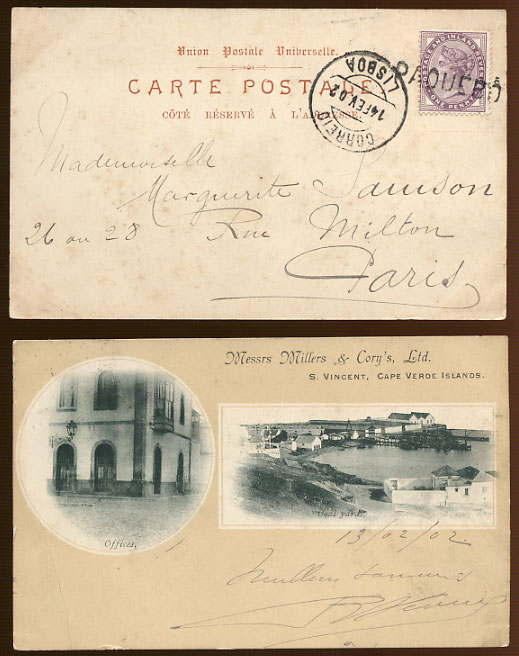 Union Postale Universelle.
CARTE POSTALE
CÔTÉ RÉSERVÉ À L'ADRESSE.
POSTAGE AND INLAND REVENUE
ONE PENNY
PAQUETE
CORREIO
14 FEV. 02
LISBOA
Mademoiselle
Marguerite Samson
26 ou 28 Rue Milton
Paris
Messrs Millers & Cory's, Ltd.
S. VINCENT, CAPE VERDE ISLANDS.
Offices.
Coal yard.
13/02/02